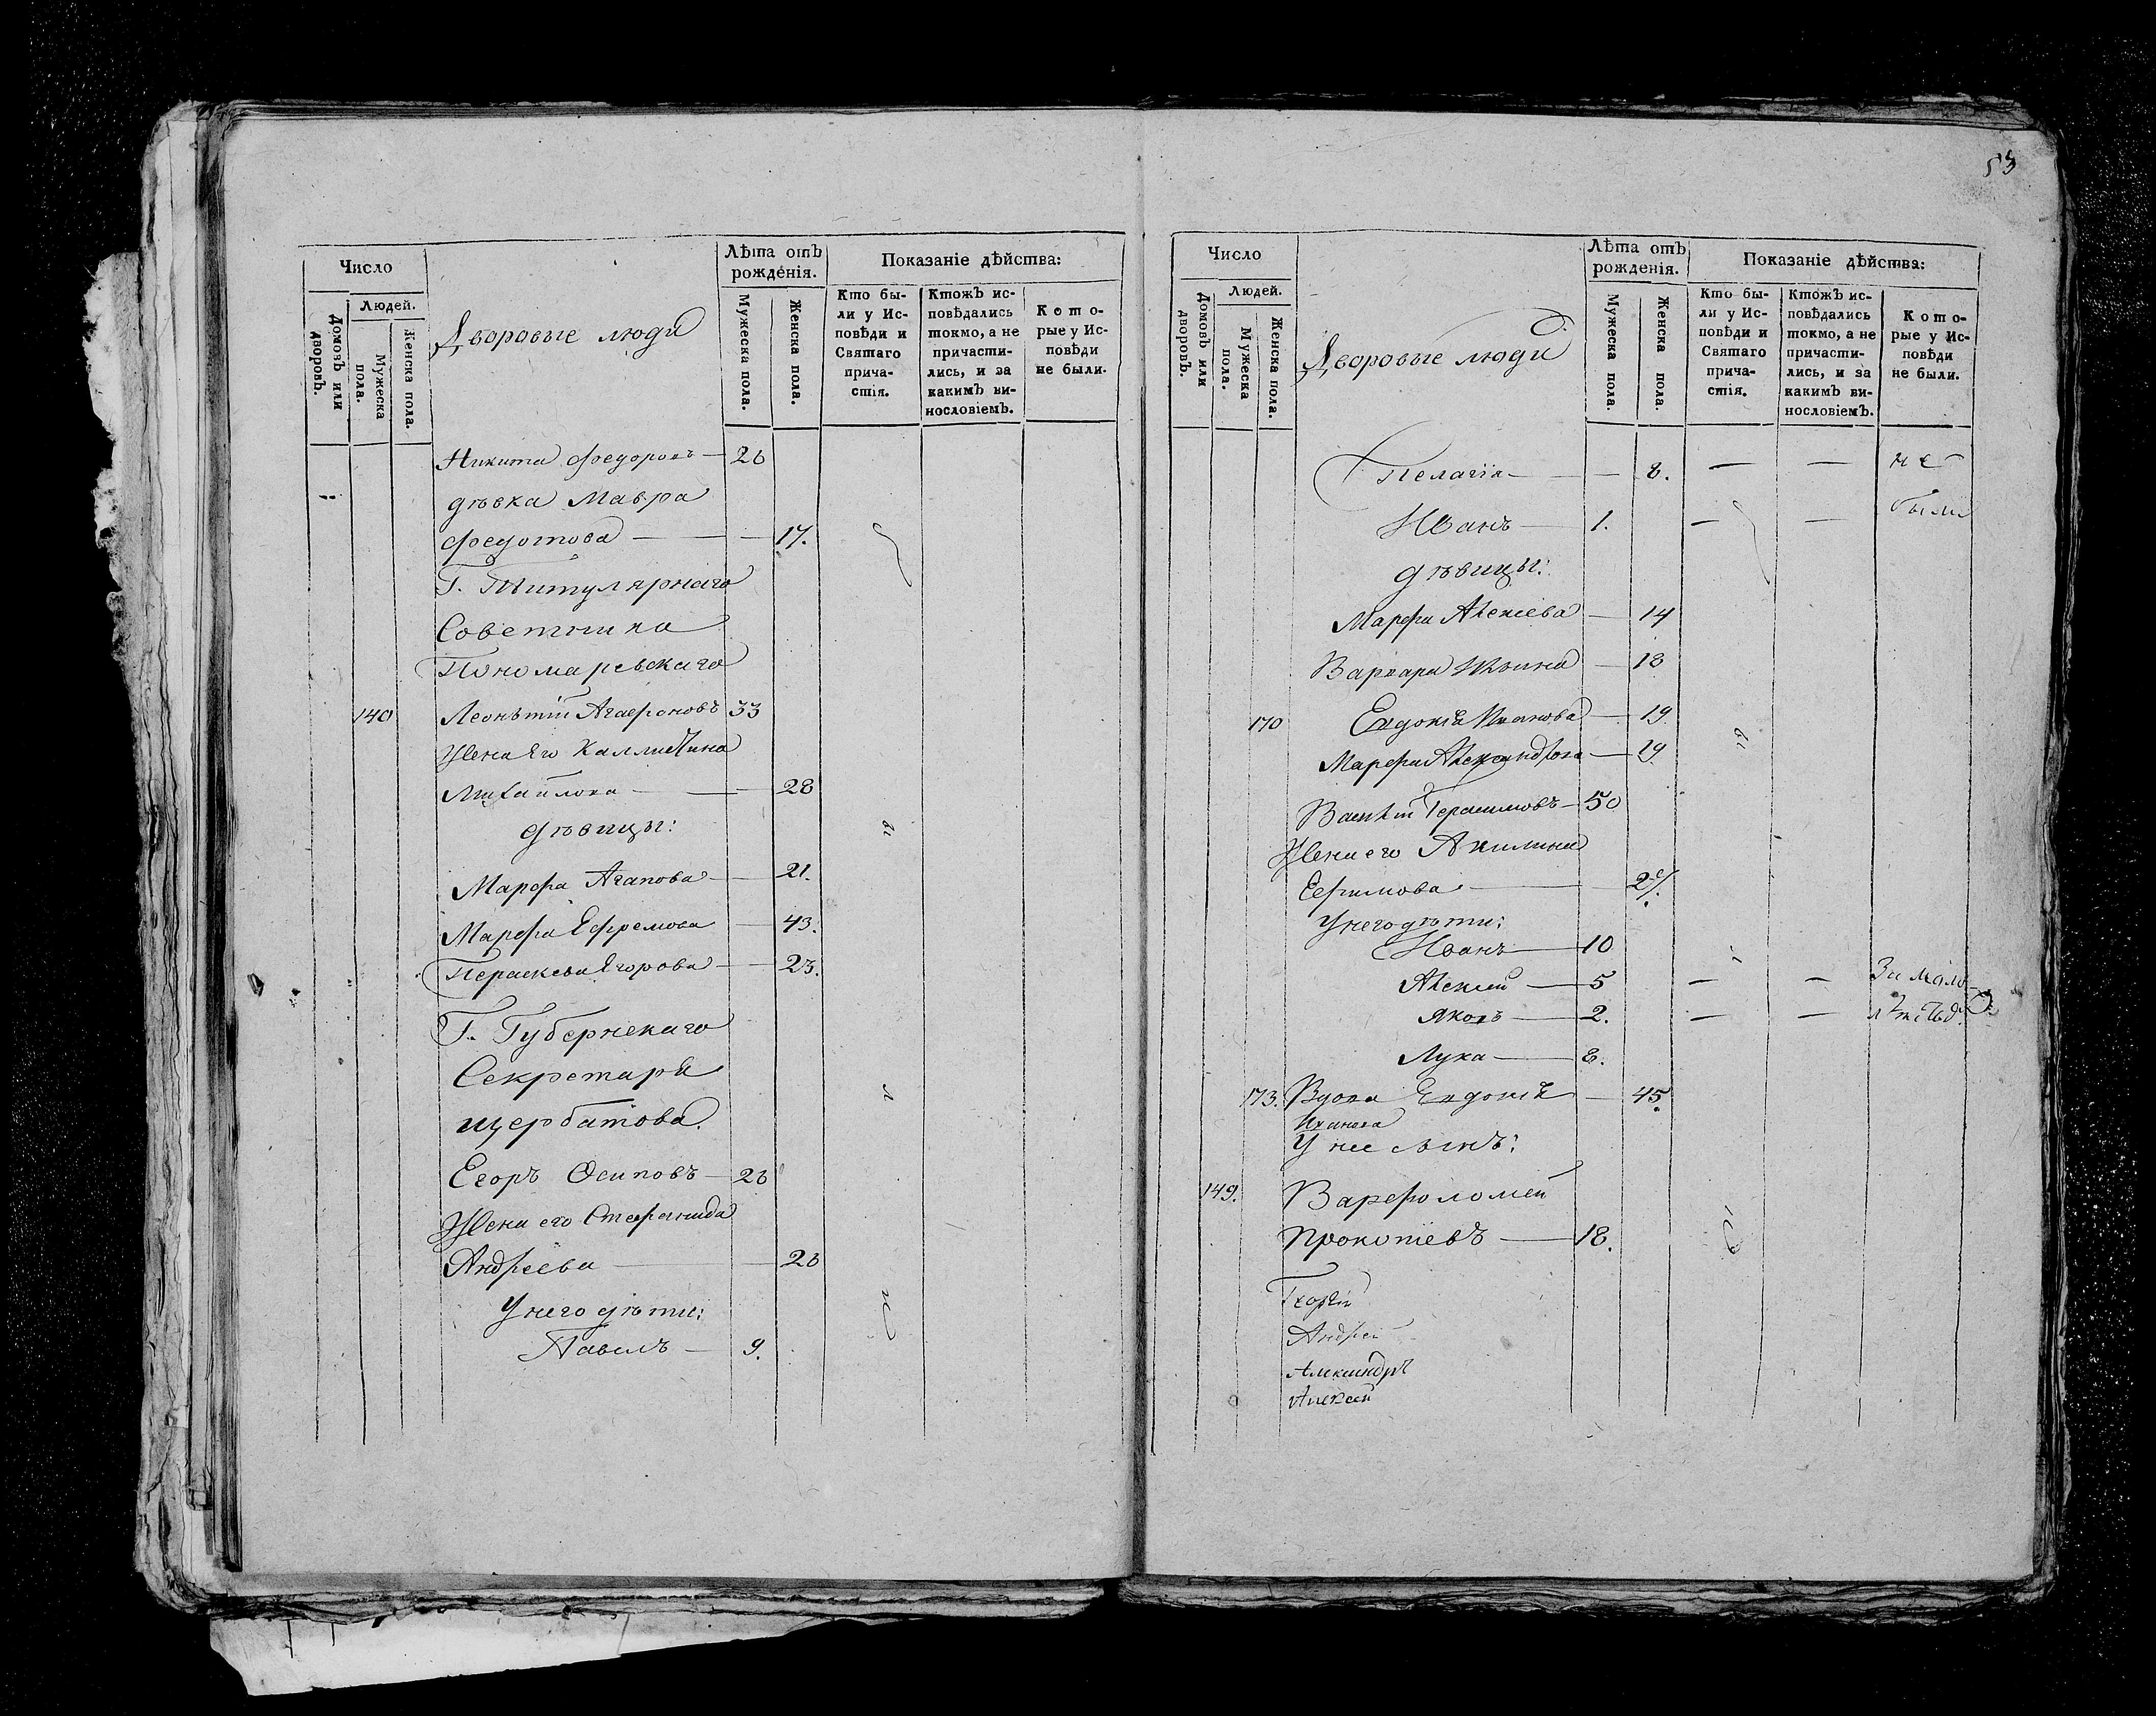 53
Число
Лѣта отъ рожде́нія.
Показаніе дѣйства:
Домовъ или дворовъ.
Людей.
Мужеска пола.
Женска пола.
Дворовые люди
Мужеска пола.
Женска пола.
Кто бы-
ли у Ис-
повѣди и
Святаго
прича-
стія.
Ктожъ ис-
повѣдались
токмо, а не
причасти-
лись, и за
какимъ ви-
нословіемъ.
Кото-
рые у Ис-
повѣди
не были.
Никита Федоровъ — 26
дѣвка Мавра
Федотова — — 17.
Г. Титулярнаго
Советника
Пономаревскаго
140 Леонътій Агафоновъ 33
Жена Его
Михайлова — 28
дѣвицы:
ы
Марфа Агапова — 21.
Марфа Ефремова — 43.
Параскева Егорова — 23.
Г. Губернскаго
Секретаря
л
щербатова.
Егоръ Осиповъ — 26
Жена его Стефанида
Андреева — 26
У него дѣти:
и
Павелъ — 9.
Число
Лѣта отъ рожденія.
Показаніе дѣйства:
Домовъ или дворовъ.
Людей.
Мужеска пола.
Женска пола.
Дворовые люди
Мужеска пола.
Женска пола.
Кто бы-
ли у Ис-
повѣди и
Святаго
прича-
стія.
Ктожъ ис-
повѣдались
токмо, а не
причасти-
лись, и за
какимъ ви-
нословіемъ.
Кото-
рые у Ис-
повѣди
не были.
Пелагія — — 8. — — не
Иванъ — 1. — — были
дѣвицы:
Марфа Алексіева — 14
Варвара Ильина — 18
170 Евдокія Иванова — 19
Марфа Александрова — 29
Василій Герасимовъ — 50
Жена его Акилина
Ефимова —
У него дѣти:
Иванъ — 10
Алексій — 5 — — За мало
Яковъ — 2. — — лѣтствѣ.
Лука — 8.
173. Вдова Евдокія — 45.
Иванова
У нее сынъ:
149. Варфоломей
Прокопіевъ — 18.
Георгій
Андрей
Александръ
Алексей